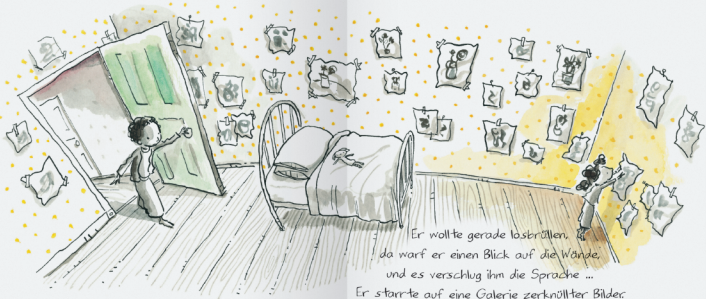 Er wollte gerade losbrüllen,
da warf er einen Blick auf die Wände,
und es verschlug ihm die Sprache ...
Er starrte auf eine Galerie zerknüllter Bilder.